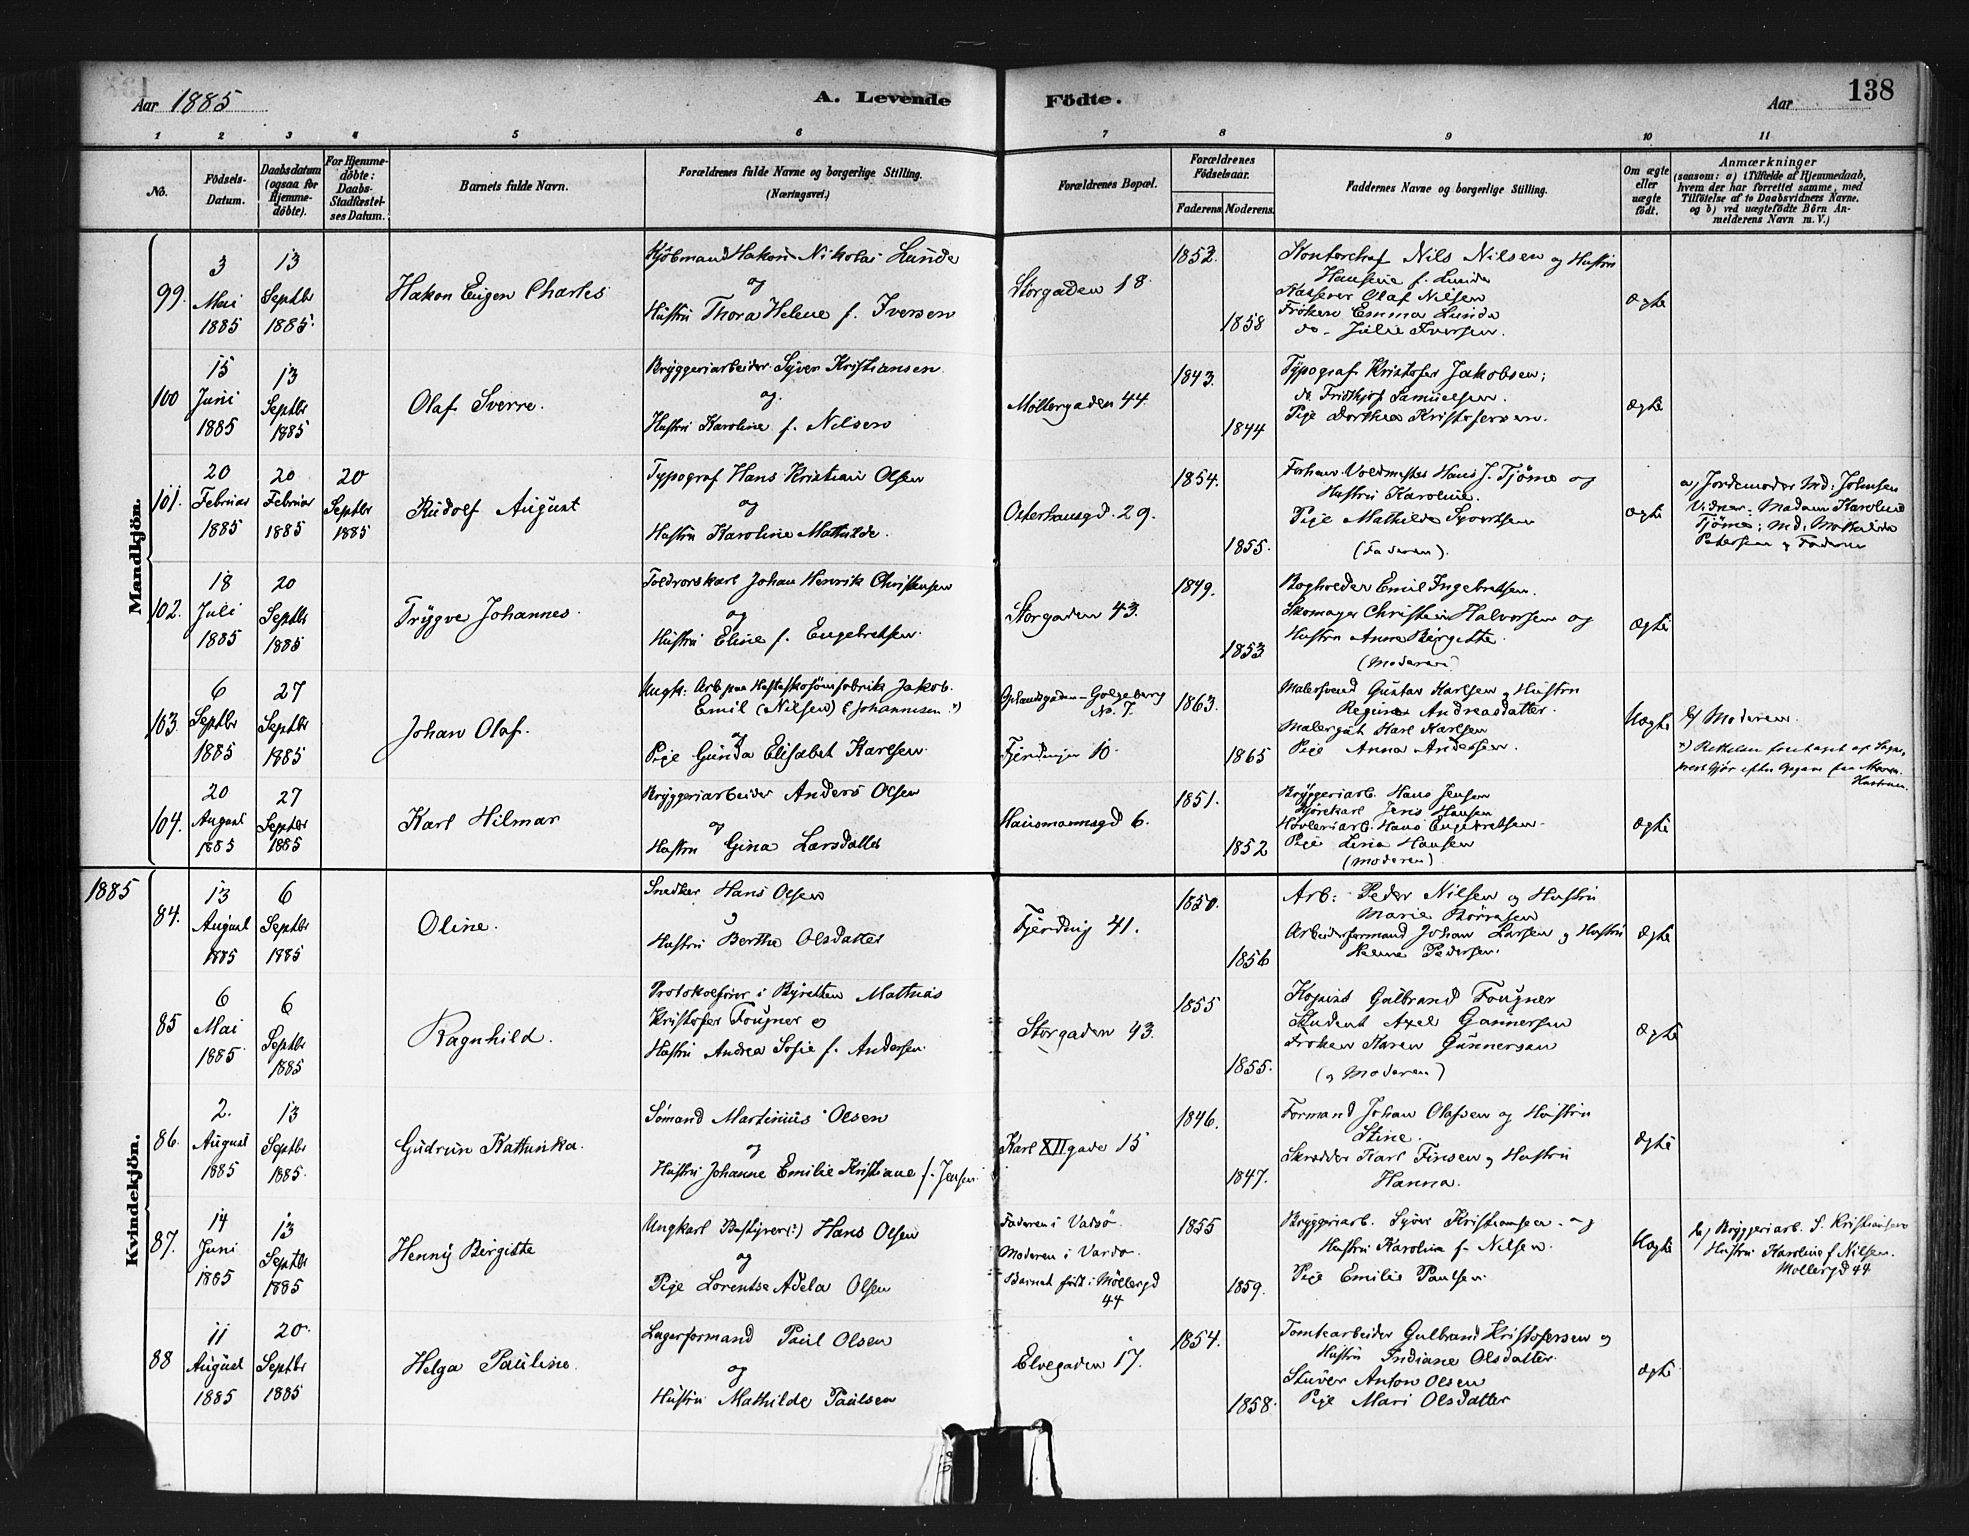 Aar 1885
A. Levende Födte.
Aar
138
1 2 3 4 5 6 7 8 9 10 11
No.
Födsels-
Datum.
Daabsdatum
(ogsaa for
Hjemme-
döbte).
For Hjemme-
döbte:
Daabs-
Stadfæstel-
ses Datum.
Barnets fulde Navn.
Forældrenes fulde Navne og borgerlige Stilling.
(Næringsvei.)
Forældrenes Bopæl.
Forældrenes
Födselsaar.
Faderens Moderens
Faddernes Navne og borgerlige Stilling.
Om ægte
eller
uægte
födt.
Anmærkninger
(saasom: a) i Tilfælde af Hjemmedaab,
hvem der har forrettet samme, med
Tilföielse af to Daabsvidners Navne,
og b) ved uægtefödte Börn An-
melderens Navn m. V.)
Mandkjön.
99.
3
Mai
1885
13
Septbr
1885.
Hakon Eugen Charles
Kjöbmand Hakon Nikolai Lunde
og
Hustru Thora Helene f. Iversen
Storgaden 18.
1852.
1858
Kontorchef Nils Nilsen og Hustru
Hansine f. Lunde
Kasserer Olaf Nilsen
Fröken Emma Lunde
do - Julie Iversen.
Ægte
100
15
Juni
1885
13
Septbr
1885
Olaf Sverre.
Bryggeriarbeider Syver Kristiansen
og
Hustru Karoline f. Nilsen
Möllergaden 44.
1843.
1844
Typograf Kristofer Jakobsen;
do. Fridthjof Samuelsen.
Pige Dorthea Kristofersen.
Ægte
101.
20
Februar
1885
20
Februar
1885
20
Septbr
1885
Rudolf August
Typograf Hans Kristian Olsen
og
Hustru Karoline Mathilde.
Osterhausgd. 29.
1854.
1855.
Forhenv. Voldmester Hans J. Tjöme og
Hustru Karoline.
Pige Mathilde Syvertsen
(Faderen).
Ægte
a) Jordemoder Md: Johnsen
Vidner: Madam Karoline
Tjöme; Md: Mathilde
Petersen og Faderen
102.
18
Juli
1885
20
Septbr
1885
Trygve Johannes.
Toldvorskarl Johan Henrik Christensen
og
Hustru Eline f. Engebretsen.
Storgaden 43.
1849.
1853
Bogholder Emil Ingebretsen.
Skomager Christian Halvorsen og
Hustru Anne Birgitte.
(Moderen)
Ægte
103.
6
Septbr
1885
27
Septbr
1885
Johan Olaf.
Ungk: Arb. paa Hesteskosömfabrik Jakob
Emil (Nilsen) (Johannesen *)
og
Pige Gunda Elisabet Karlsen.
Oplandsgaden - Golgeberg
No. 7.
Fjerdingen 10.
1863.
1865
Malersvend Gustav Karlsen og Hustru
Regine Andreasdatter.
Malergut Karl Karlsen
Pige Anna Andersen.
Uægte
b) Moderen.
*) Rettelsen foretaget af Sogne-
104.
20
August
1885
27
Septbr
1885
Karl Hilmar
Bryggeriarbeider Anders Olsen
og
Hustru Gina Larsdatter
Hausmannsgd 6.
1851.
1852
Bryggeriarb. Hans Jensen
Kjörekarl Jens Hansen
Høvleriarb. Hans Engebretsen
Pige Lina Hansen
(Moderen)
Ægte
Kvindekjön.
1885
84.
13
August
1885
6
Septbr
1885
Oline.
Snedker Hans Olsen
og
Hustru Berthe Olsdatter
Fjerding 41.
1850.
1856
Arb: Peder Nilsen og Hustru
Marie Börresen
Arbeidsformand Johan Larsen og Hustru
Helene Pedersen.
Ægte
85
6
Mai
1885
6
Septbr
1885
Ragnhild.
Protokolförer i Byretten Mathias
Kristofer Fougner og
Hustru Andrea Sofie f. Andersen.
Storgaden 43.
1855
1855.
Kopist Gulbrand Fougner
Student Axel Gunnersen
Fröken Karen Gunnersen
(og Moderen)
Ægte
86.
2.
August
1885
13
Septbr
1885.
Gudrun Kattinka.
Sömand Martinius Olsen
og
Hustru Johanne Emilie Kristiane f. Jensen
Karl XIIgade 15
1846.
1847.
Formand Johan Olafsen og Hustru
Stine.
Skredder Karl Finsen og Hustru
Hanna.
Ægte
87.
14
Juni
1885
13
Septbr
1885
Henny Birgitte
Ungkarl Bestyrer(:) Hans Olsen
og
Pige Lorentse Adela Olsen
Faderen i Vadsö.
Moderen i Vardö.
Barnet födt i Möllergd
44
1855
1859.
Bryggeriarb. Syver Kristiansen og
Hustru Karoline f. Nilsen.
Pige Emilie Paulsen.
Uægte
b) Bryggeriarb. S. Kristiansen
Hustru Karoline f. Nilsen.
Möllergd 44
88
11
August
1885
20.
Septbr
1885
Helga Pauline.
Lagerformand Paul Olsen
og
Hustru Mathilde Paulsen
Elvegaden 17.
1854.
1858.
Tomtearbeider Gulbrand Kristofersen og
Hustru Indiane Olsdatter.
Stuver Anton Olsen
Pige Mari Olsdatter
Ægte